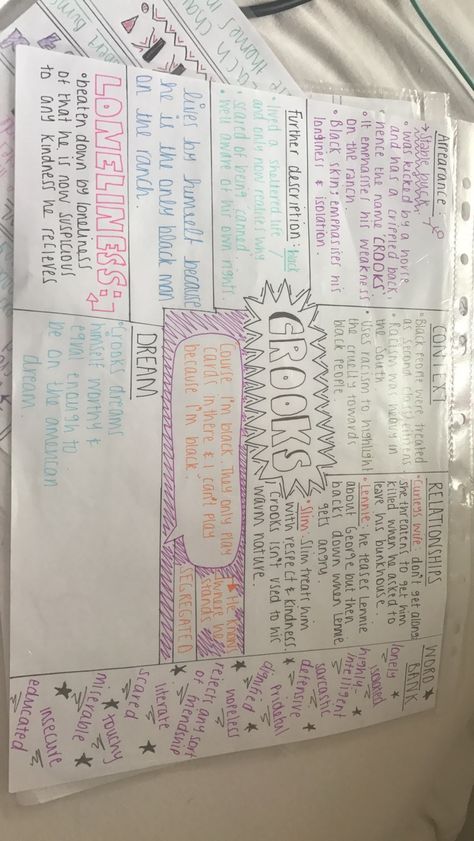 Appearance:
→ stable buck
• was kicked by a horse
and has a crippled back
hence the name 'CROOKS'
• it emphasise his weakness
on the ranch.
• Black skin: emphasises his
longiness & isolation.
Further description:
• lived a sheltered life
and only now realises why
• scared of being canned
• well aware of his own rights.
lives by himself because
he is the only black man
on the ranch.
LONELINESS:
• beaten down by loneliness
of that he is now suspicious
to any kindness he recieves
CONTEXT
• Black people were treated
as second-
• Racism was heavy in
the south
• Uses racism to highlight
the cruelty towards
black people.
CROOKS
Course I'm black. They only play
cards in there & I can't play
because I'm black.
→ He knows
where he
stands
SEGREGATED
DREAM
• Crooks dreams
himself worthy &
equal enough to
be on the american
dream.
RELATIONSHIPS
• Curleys wife: don't get along
she threatens to get him
killed when he asked to
leave his bunkhouse.
• Lennie: he teases Lennie
about George but then
backs down when Lennie
gets angry.
• Slim: Slim treats him
with respect & kindness
Crooks isn't used to his
warm nature.
WORD
BANK
lonely
isolated
highly-
intelligent
sarcastic
defensive
prideful
dignified
hopeless
rejects any sort
of friendship
literate
scared
touchy
miserable
insecure
educated